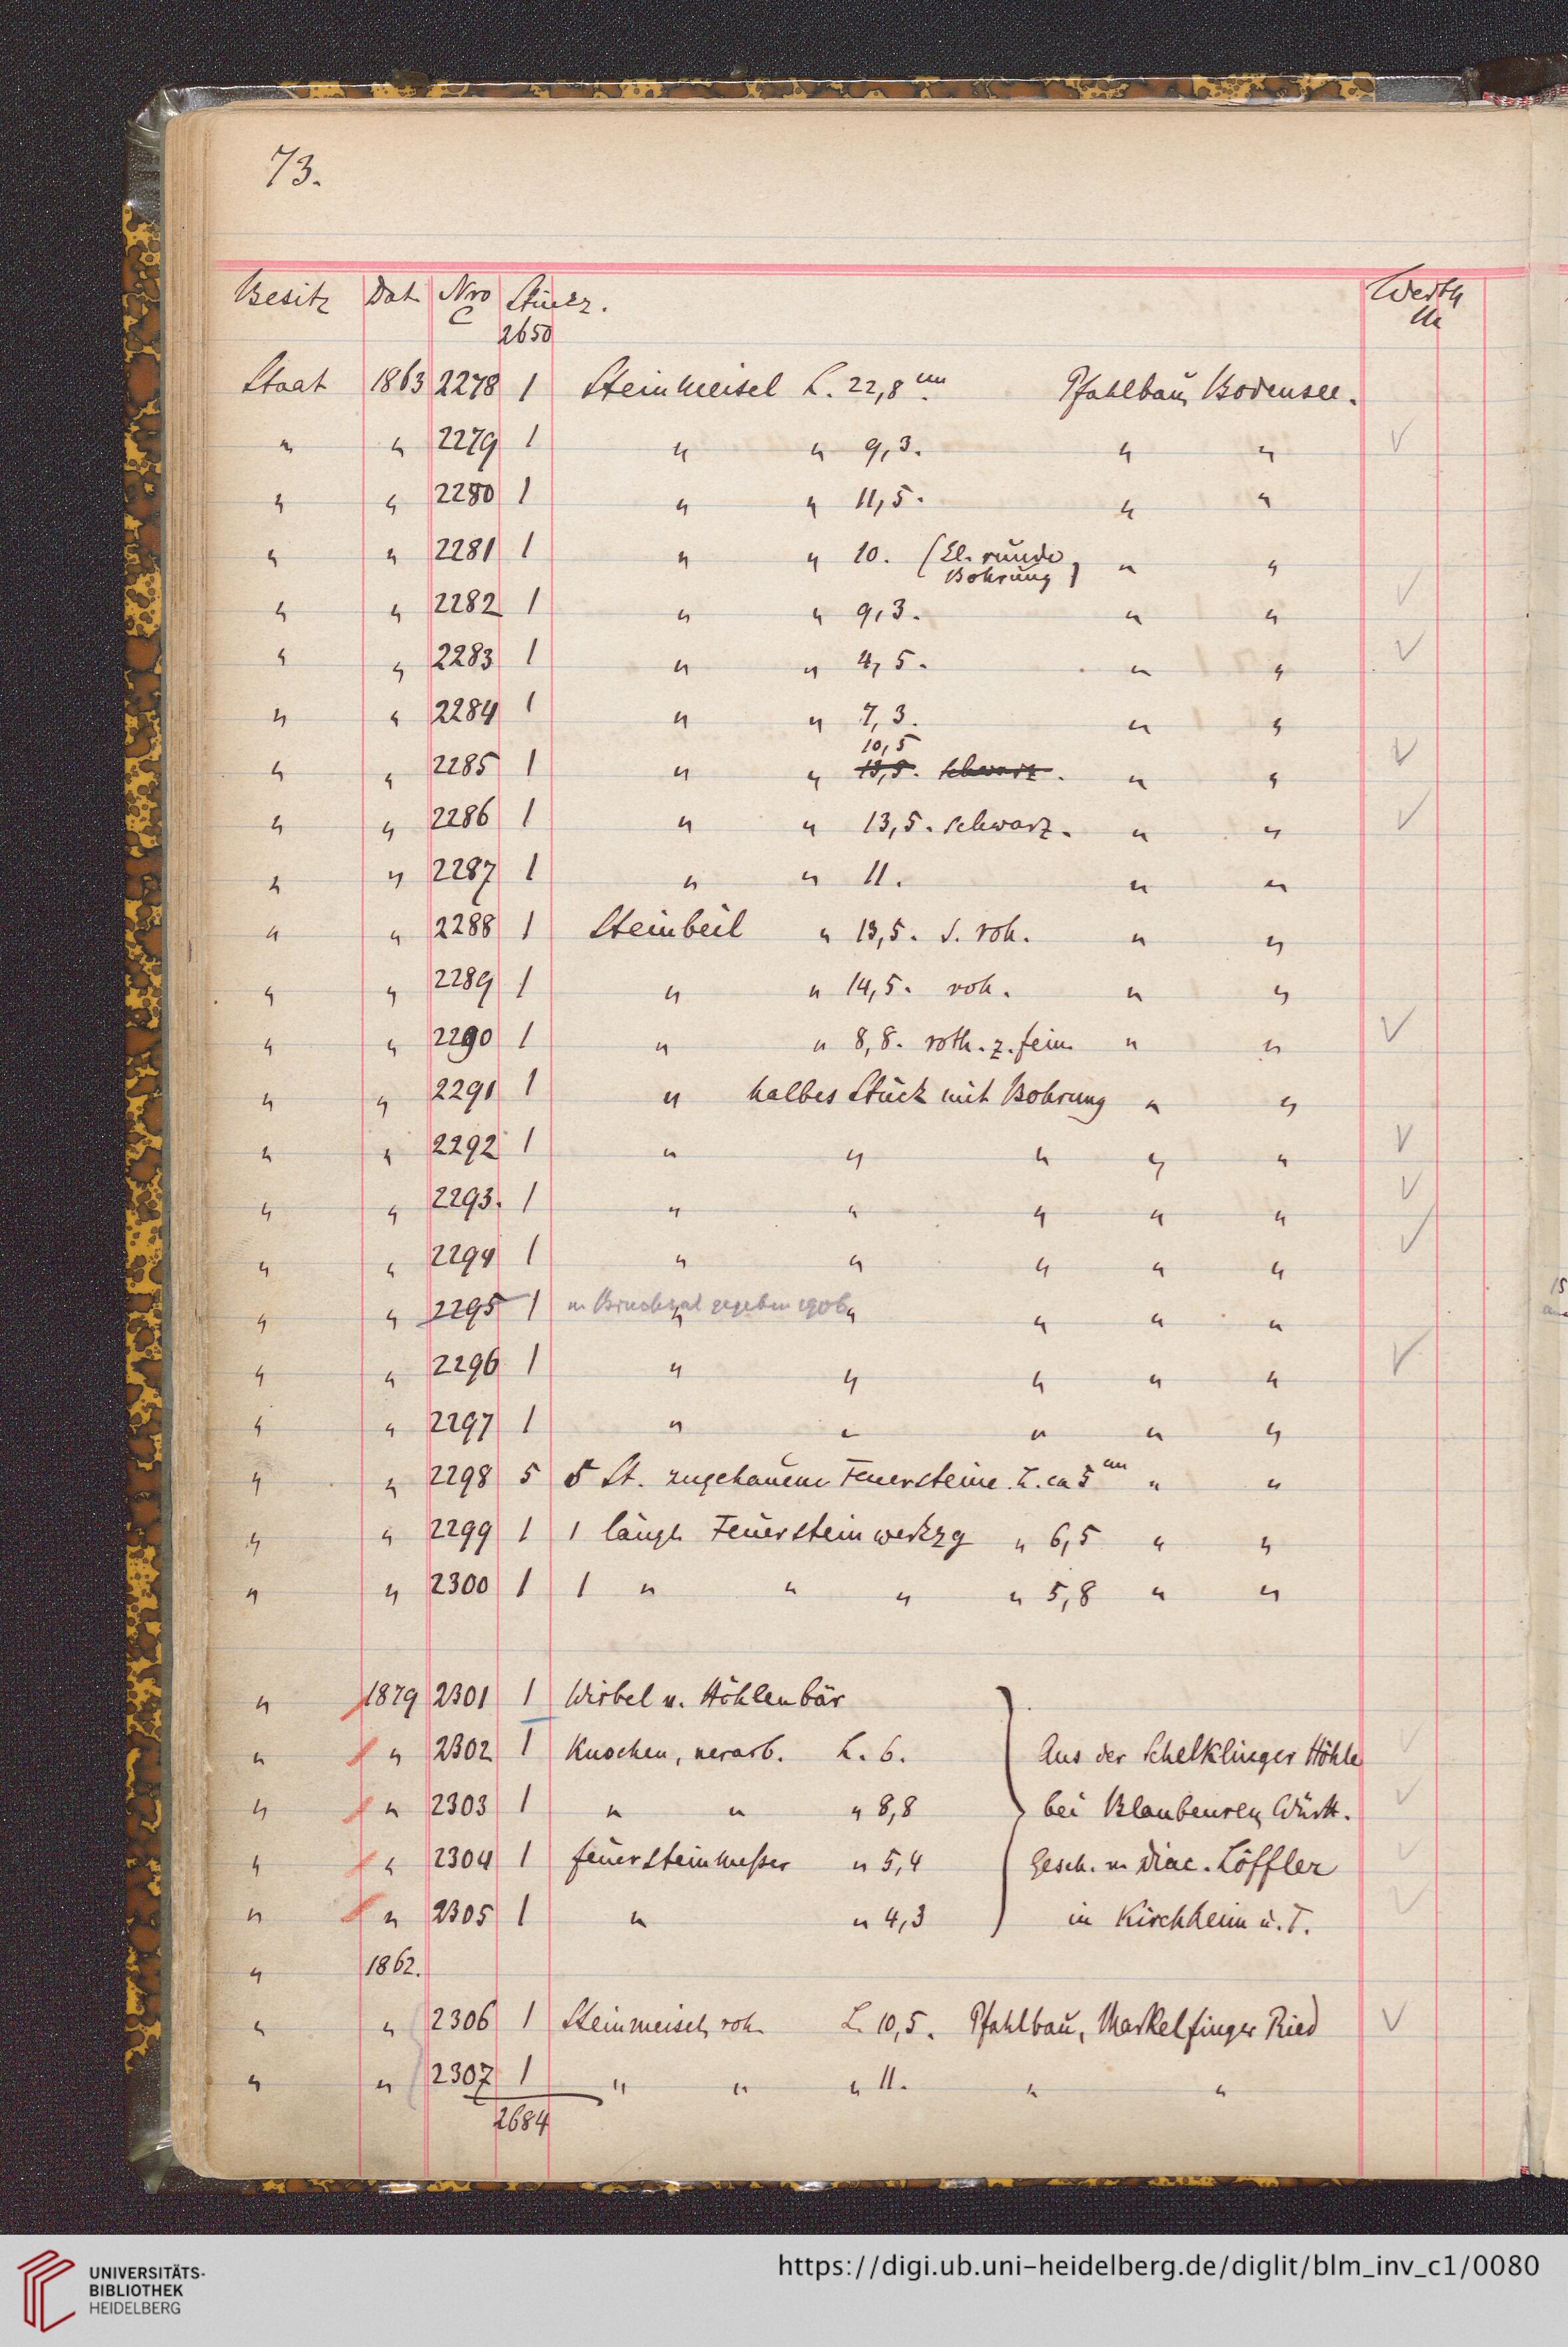 73.
Besitz Dat. Nro C Stückz. Werth M
2650
Staat 1863 2278 1 Steinmeisel L. 22,8 cm. Pfahlbau, Bodensee.
" " 2279 1 " " 9,3. " "
" " 2280 1 " " 11,5. " "
" " 2281 1 " " 10. (El. runde Bohrung) " "
" " 2282 1 " " 9,3. " "
" " 2283 1 " " 4,5. " "
" " 2284 1 " " 7,3. " "
10,5
" " 2285 1 " " 13,5. schwarz. " "
" " 2286 1 " " 13,5. schwarz. " "
" " 2287 1 " " 11. " "
" " 2288 1 Steinbeil " 13,5. s. roh. " "
" " 2289 1 " " 14,5. roh. " "
" " 2290 1 " " 8,8. roth. z. fein. " "
" " 2291 1 " halbes Stück mit Bohrung " "
" " 2292 1 " " " " "
" " 2293. 1 " " " " "
" " 2294 1 " " " " "
" " 2295 1 n. Bruchsal gegeben 1906 " " " " "
" " 2296 1 " " " " "
" " 2297 1 " " " " "
" " 2298 5 5 St. zugehauene Feuersteine. L. ca 5 cm " "
" " 2299 1 1 längl. Feuersteinwerkzg " 6,5 " "
" " 2300 1 1 " " " " 5,8 " "
" 1879 2301 1 Wirbel v. Höhlenbär
" " 2302 1 Knochen, verarb. L. 6. Aus der Schelklinger Höhle
" " 2303 1 " " " 8,8 bei Blaubeuren, Württ.
" " 2304 1 Feuersteinmesser " 5,4 Gesch. v. Diac. Löffler
" " 2305 1 " " 4,3 in Kirchheim u. T.
" 1862.
" " 2306 1 Steinmeisel, roh. L. 10,5. Pfahlbau, Markelfinger Ried
" " 2307 1 " " " 11. " "
2684
UNIVERSITÄTS-
BIBLIOTHEK
HEIDELBERG
https://digi.ub.uni-heidelberg.de/diglit/blm_inv_c1/0080